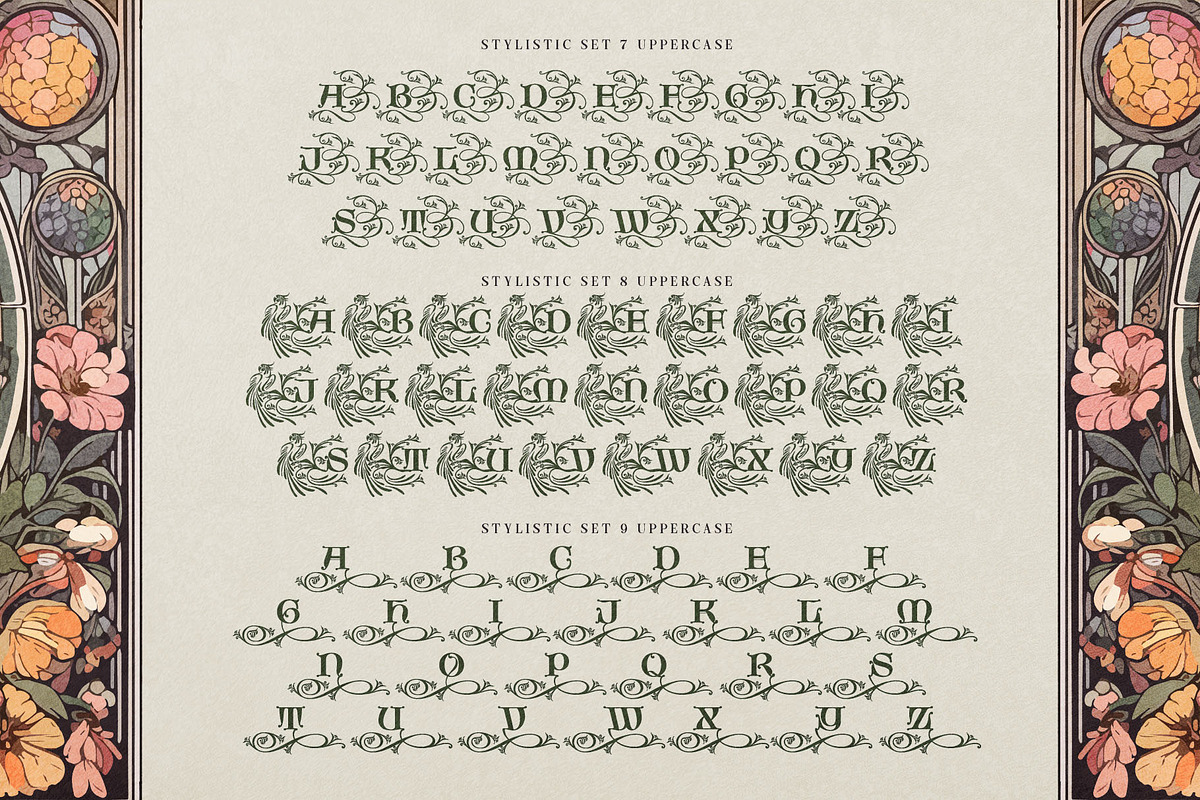 STYLISTIC SET 7 UPPERCASE
A B C D E F G H I
J K L M N O P Q R
S T U V W X Y Z
STYLISTIC SET 8 UPPERCASE
A B C D E F G H I
J K L M N O P Q R
S T U V W X Y Z
STYLISTIC SET 9 UPPERCASE
A B C D E F
G H I J K L M
N O P Q R S
T U V W X Y Z